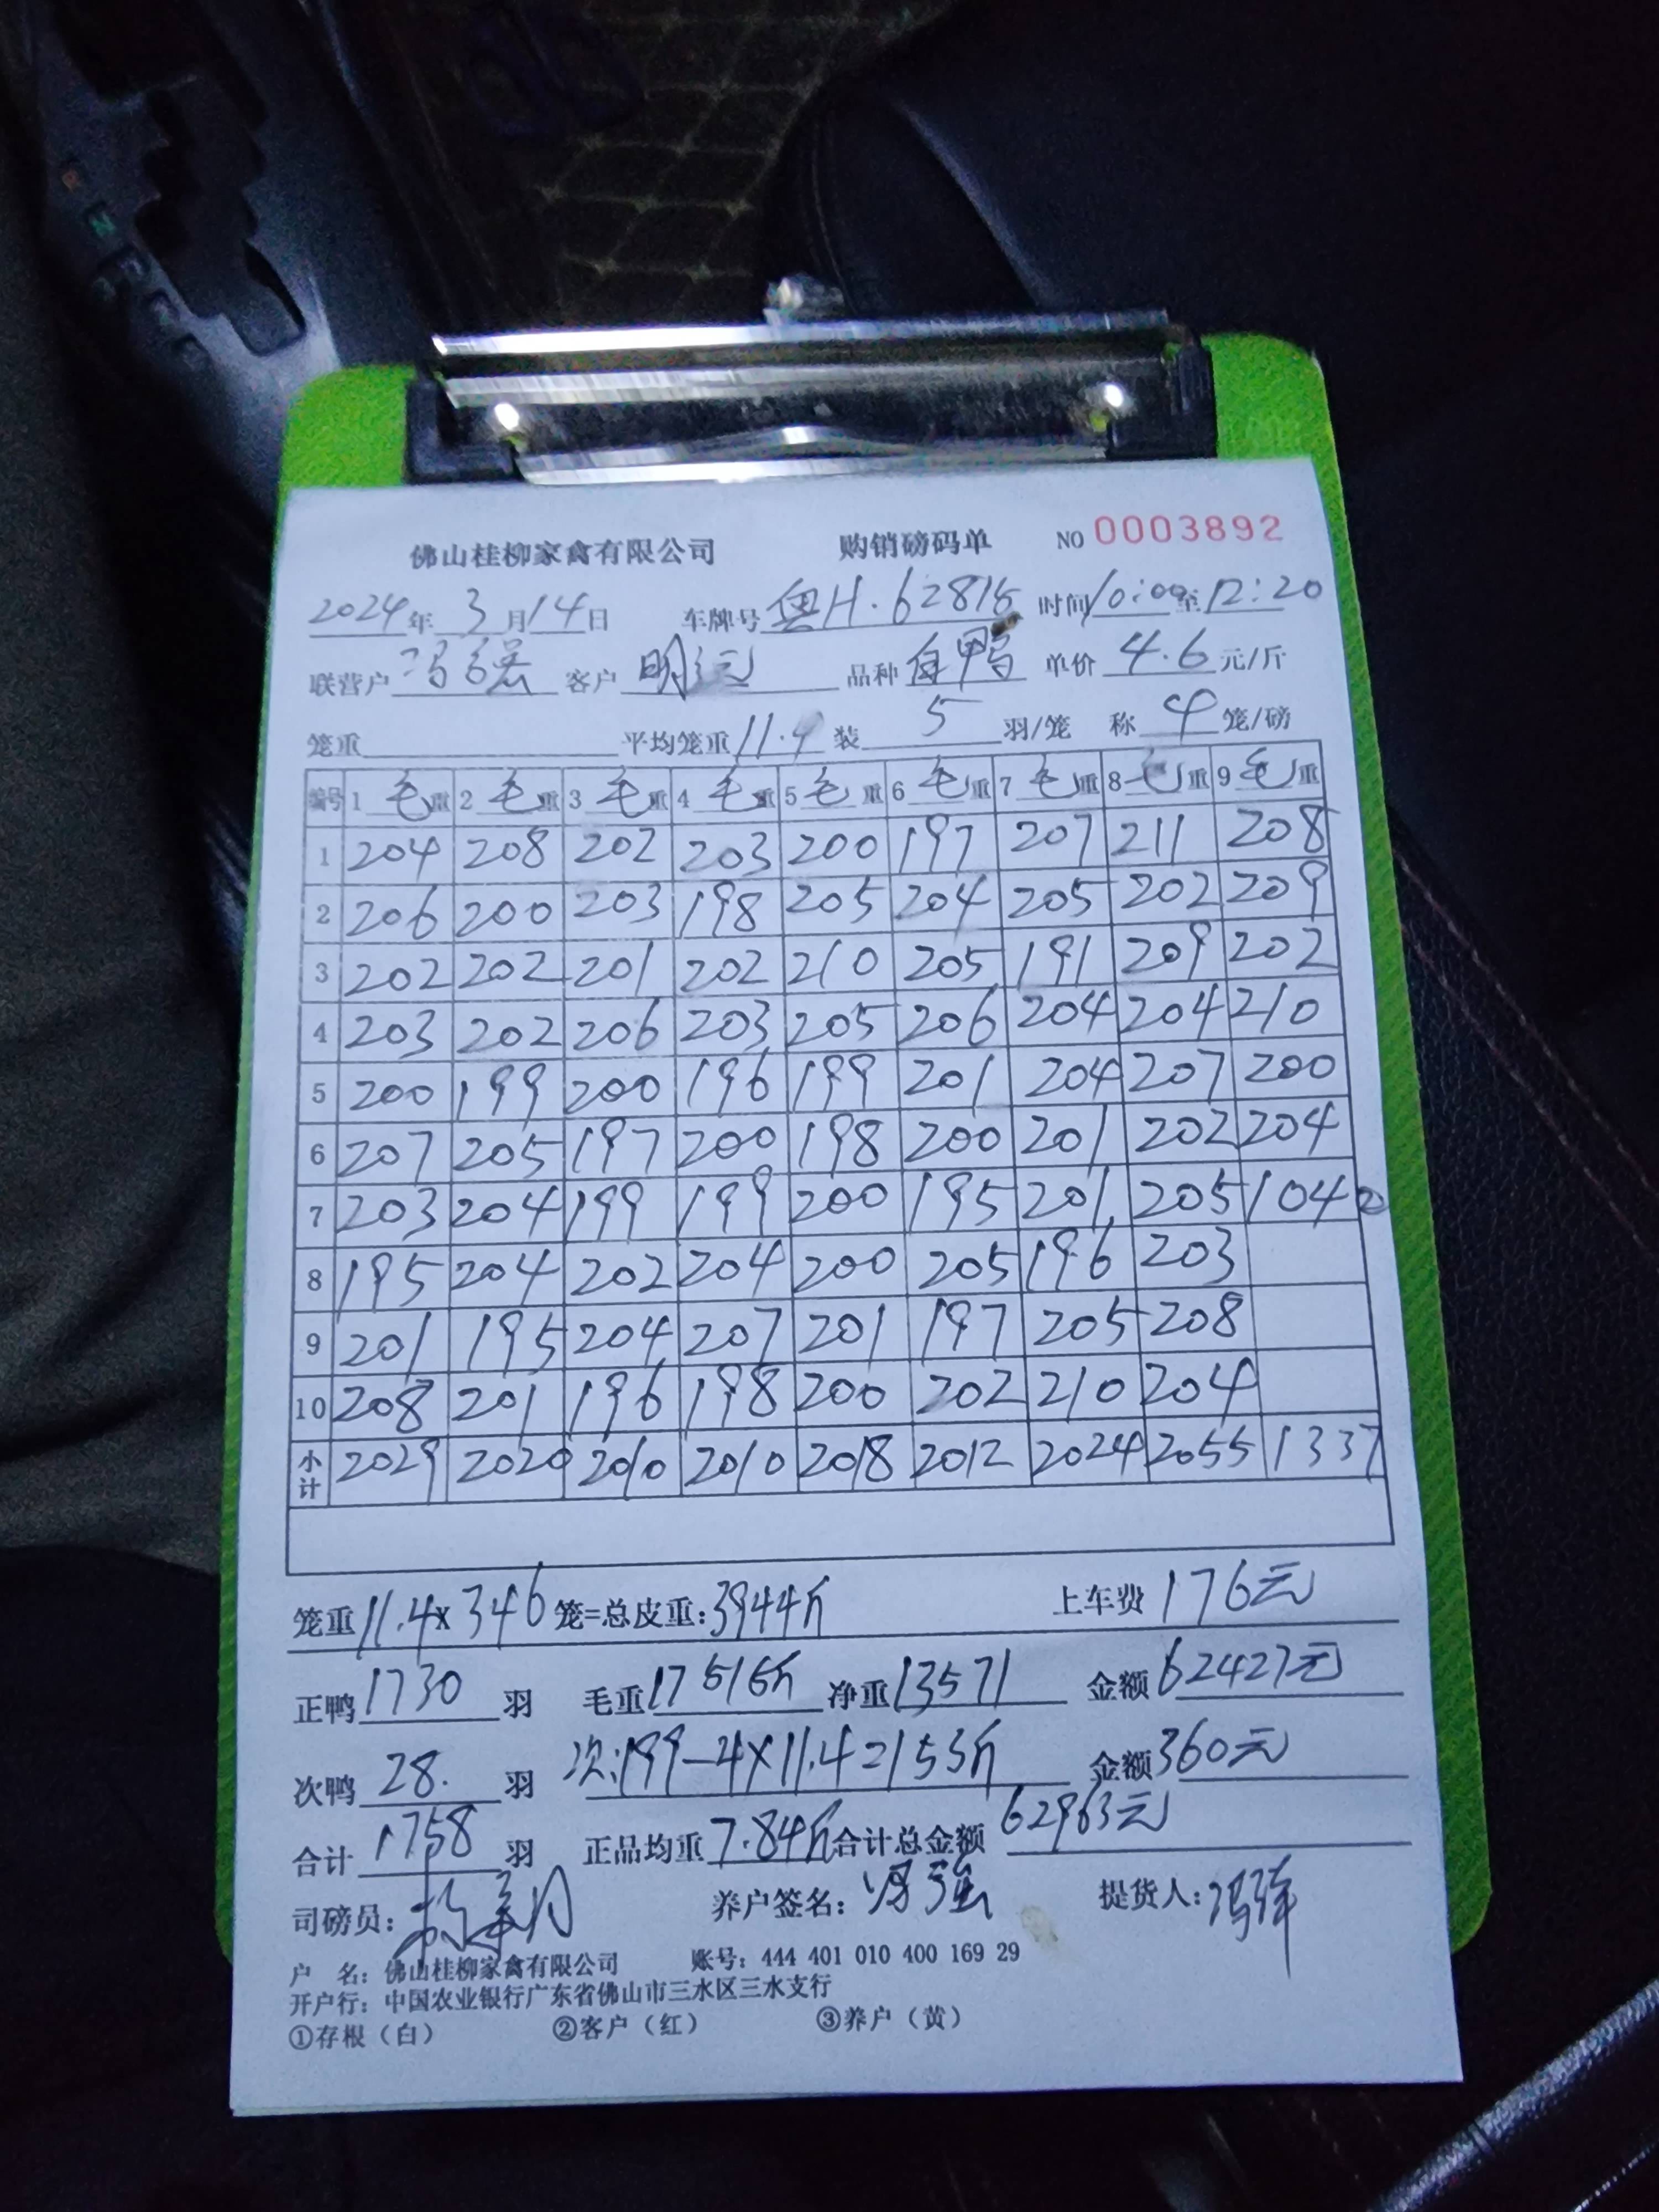 佛山桂柳家禽有限公司 购销磅码单 NO 0003892
2024年 3月14日 车牌号 粤H·6281 时间10:00至12:20
联营户 冯 客户 明 品种 白鸭 单价 4.6 元/斤
笼重 平均笼重 11.4 装 5 羽/笼 称 4 笼/磅
编号 1 毛重 2 毛重 3 毛重 4 毛重 5 毛重 6 毛重 7 毛重 8 毛重 9 毛重
1 204 208 202 203 200 197 207 211 208
2 206 200 203 198 205 204 205 202 209
3 202 202 201 202 210 205 191 209 202
4 203 202 206 203 205 206 204 204 210
5 200 199 200 196 199 201 204 207 200
6 207 205 197 200 198 200 201 202 204
7 203 204 199 199 200 195 201 205 104 ②
8 195 204 202 204 200 205 196 203
9 201 195 204 207 201 197 205 208
10 208 201 196 198 200 202 210 204
小计 2029 2020 2010 2010 2018 2012 2024 2055 1337
笼重 11.4×346 笼=总皮重:3944斤 上车费 176元
正鸭 1730 羽 毛重 17515斤 净重 13571 金额 62427元
次鸭 28. 羽 次:199-4×11.4=153斤 金额 360元
合计 1758 羽 正品均重 7.84斤 合计总金额 62963元
司磅员: 养户签名: 冯强 提货人:
户 名: 佛山桂柳家禽有限公司 账号: 444 401 010 400 169 29
开户行: 中国农业银行广东省佛山市三水区三水支行
①存根（白） ②客户（红） ③养户（黄）